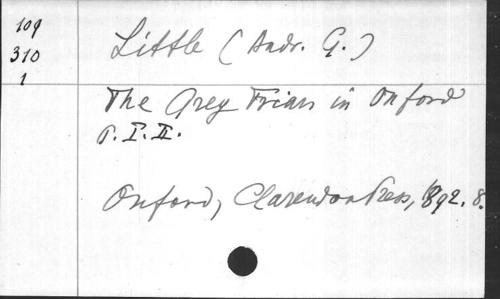 109
310
1
Little (Andr. G.)
The Grey Friars in Oxford
P. I. II.
Oxford, Clarendon Press, 1892. 8.